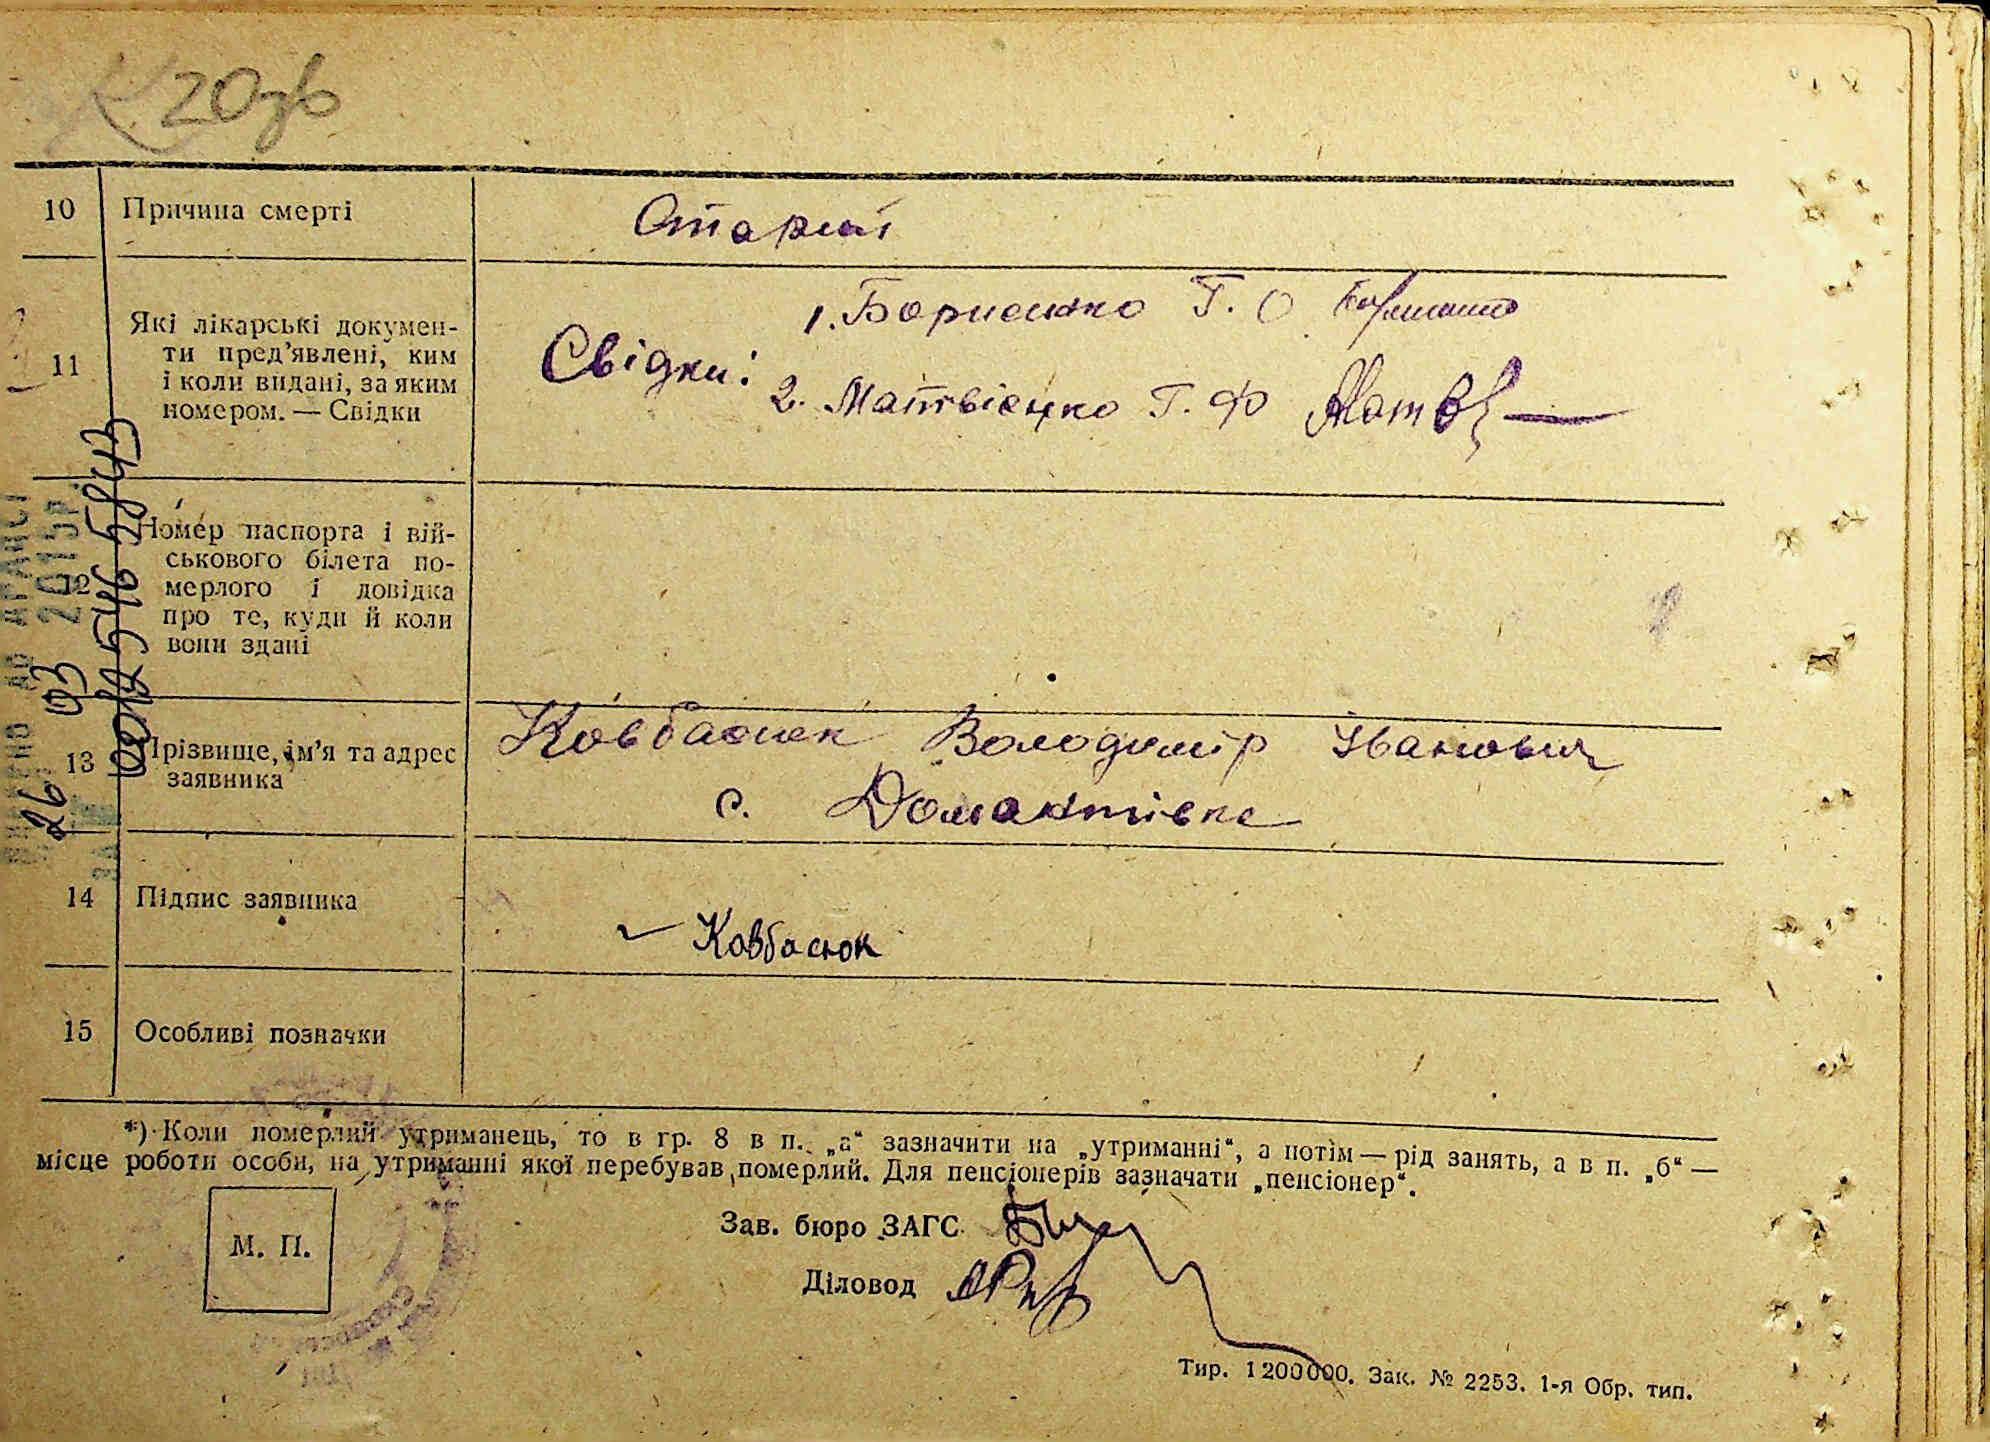 20зв
10 Причина смерті
Старий
11 Які лікарські докумен-
ти пред'явлені, ким
і коли видані, за яким
номером. — Свідки
Свідки:
1. Борисенко Г. О.
2. Матвієнко Г. Ф Матв
12 Номер паспорта і вій-
ськового білета по-
мерлого і довідка
про те, куди й коли
вони здані
13 Прізвище, ім'я та адрес
заявника
Ковбасюк Володимір Іванович
с. Домантівка
14 Підпис заявника
Ковбасюк
15 Особливі позначки
*) Коли померлий утриманець, то в гр. 8 в п. „а“ зазначити на „утриманні“, а потім — рід занять, а в п. „б“ —
місце роботи особи, на утриманні якої перебував померлий. Для пенсіонерів зазначати „пенсіонер“.
М. П.
Зав. бюро ЗАГС
Діловод
Тир. 1200000. Зак. № 2253. 1-я Обр. тип.
26 03 2015р.